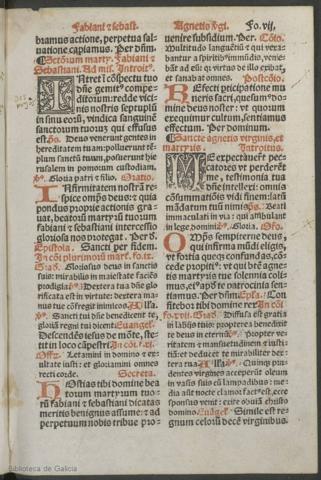 Fabiani ⁊ sebast.
bramus actione, perpetua sal-
uatione capiamus. Per dñm.
Sctõrum martyr. Fabiani ⁊
Sebastiani. Ad mis. Introit⁹.
INtret ĩ cõspectu tuo
dñe gemit⁹ compe-
ditorum: redde vici-
nis nostris septuplũ
in sinu eorũ, vindica sanguinẽ
sanctorum tuorũ qui effusus
est. Deus venerunt gentes in
hereditatem tuam: polluerunt tẽ-
plum sanctũ tuum, posuerunt hie
rusalem in pomorum custodiam.
Gloria patri ⁊ filio. Oratio.
INfirmitatem nostrã re
spice omps deus: ⁊ quia
pondus propie actionis gra-
uat, beatorũ martyrũ tuorum
fabiani ⁊ sebastiani intercessio
gloriosa nos protegat. Per dñ.
Epistola. Sancti per fidem.
In cõi plurimorũ mart. fo.ix.
Grad. Gloriosus deus in sanctis
suis: mirabilis in maiestate faciẽs
prodigia. Dextera tua dñe glo
rificata est in virtute: dextera ma-
nus tue cõfregit inimicos. Alla.
Sancti tui dñe benedicent te,
gloriã regni tui dicent. Euangel.
Descendẽs iesus de mõte, ste-
tit in loco cãpestri. In cõi. fo. xi.
Offr. Letamini in domino ⁊ ex
ultate iusti: et gloriamini omnes
recti corde. Secreta.
HOstias tibi domine bea
torum martyrum tuo-
rũ fabiani ⁊ sebastiani dicatas
meritis benignus assume: ⁊ ad
perpetuum nobis tribue pro-
Agnetis v̾gi. Fo.vij.
uenire subsidium. Per. Cõio.
Multitudo languentiũ ⁊ qui vexa-
bantur a spiritib⁹ immũdis, venie-
bãt ad eũ: q̃ virtus de illo exibat,
et sanabat omnes. Postcõio.
REfecti pticipatione mu
neris sacri, quesum⁹ do-
mine deus noster: vt quorum
exequimur cultum, sentiamus
effectum. Per dominum.
Sancte agnetis virginis, et
martyris. Introitus.
ME expectauerũt pec-
catores vt perderẽt
me, testimonia tua
dñe intellexi: omnis
cõsummatiõis vidi finem: latũ
mãdatum tuũ nimis. Beati
immaculati in via: qui ambulant
in lege domini. Gloria. Oĩo.
OMps sempiterne deus,
qui infirma mũdi eligis,
vt fortia queq̃ confundas, cõ-
cede propiti⁹: vt qui btẽ agne-
tis martyris tue solemnia coli-
mus, ei⁹ apd̃ te patrocinia sen-
tiamus. Per dñm. Epla. Con
fitebor tibi domine rex. In cõi
fo.xvii. Grad. Diffusa est gratia
in labijs tuis: propterea benedixit
te deus in eternũ. Propter veri-
tatem ⁊ mansuetudinem ⁊ iusti-
tiam: et deducet te mirabiliter dex-
tera tua. Alla. Quinq̃ pru
dentes virgines acceperũt oleum
in vasis suis cũ lampadibus: me-
dia aũt nocte clamor fact⁹ est, ecce
sponsus venit: exite obuiã christo
domino. Euãgel. Simile est re-
gnum celorũ decẽ virginibus.
Biblioteca de Galicia